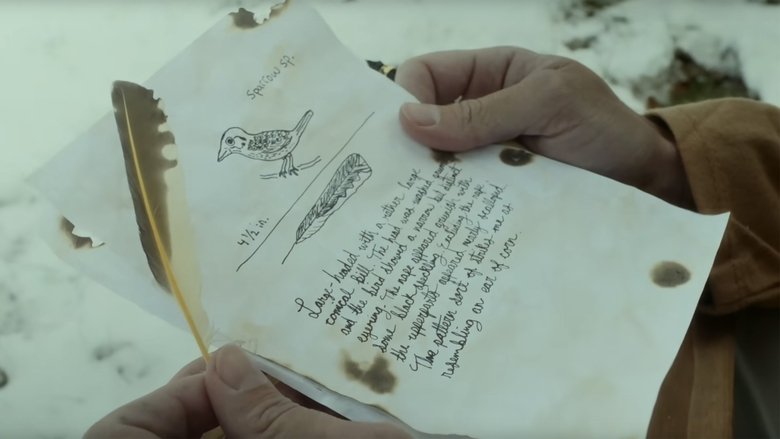 Sparrow sp.
4 1/2 in.
Large-headed with a rather large
conical bill. The head was washed gray
and the bird showed a narrow but distinct
eyering. The nape appeared greenish with
some black speckling. the nape,
the upperparts appeared nearly scalloped.
The pattern sort of strikes me as
resembling an ear of corn.